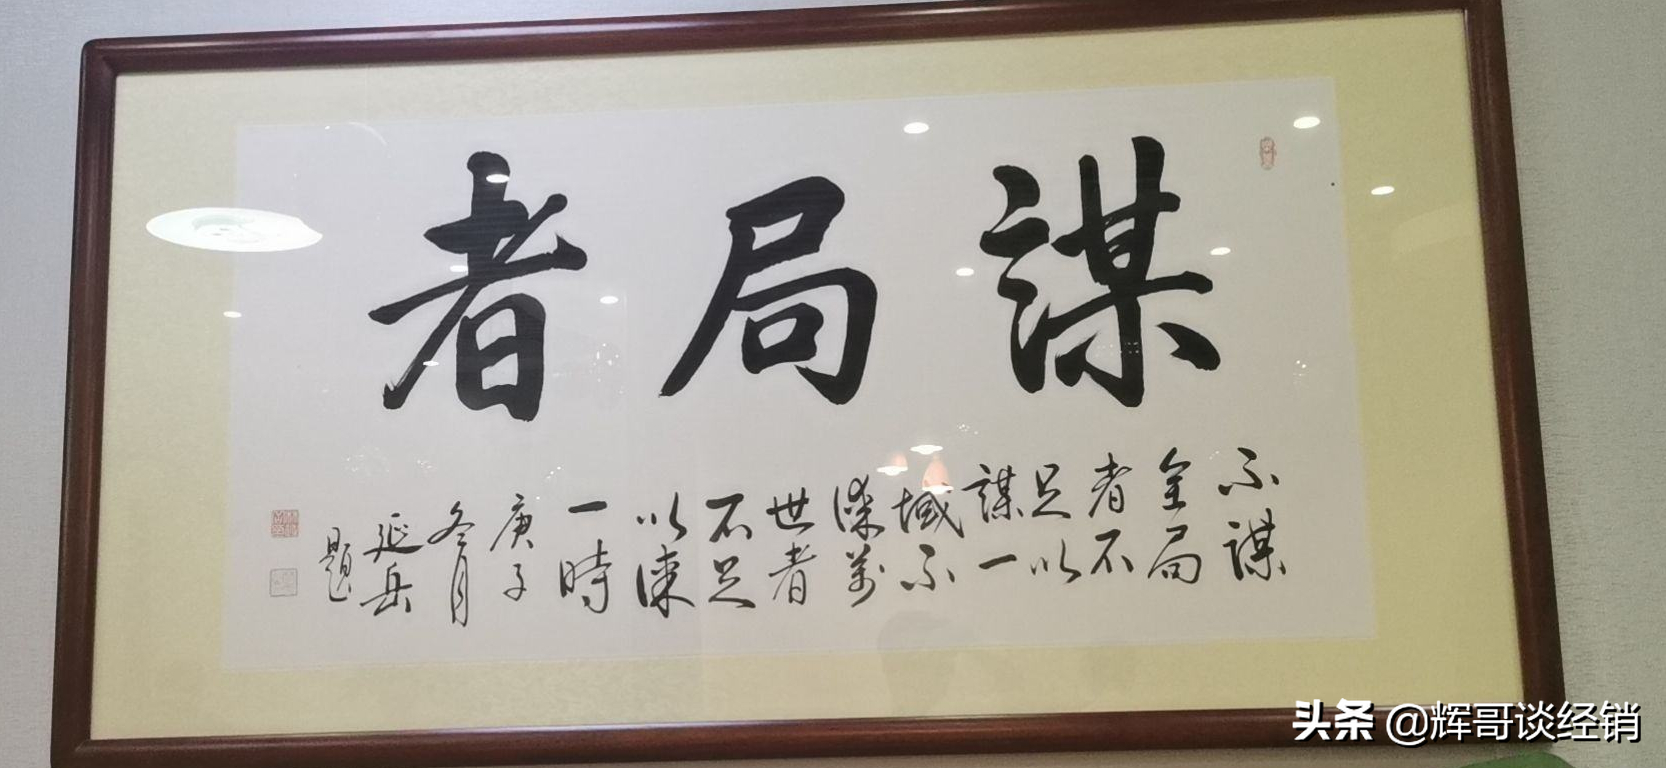 謀局者
不謀
全局
者不
足以
謀一
域不
謀萬
世者
不足
以謀
一時
庚子
冬月
延岳
題
头条 @辉哥谈经销